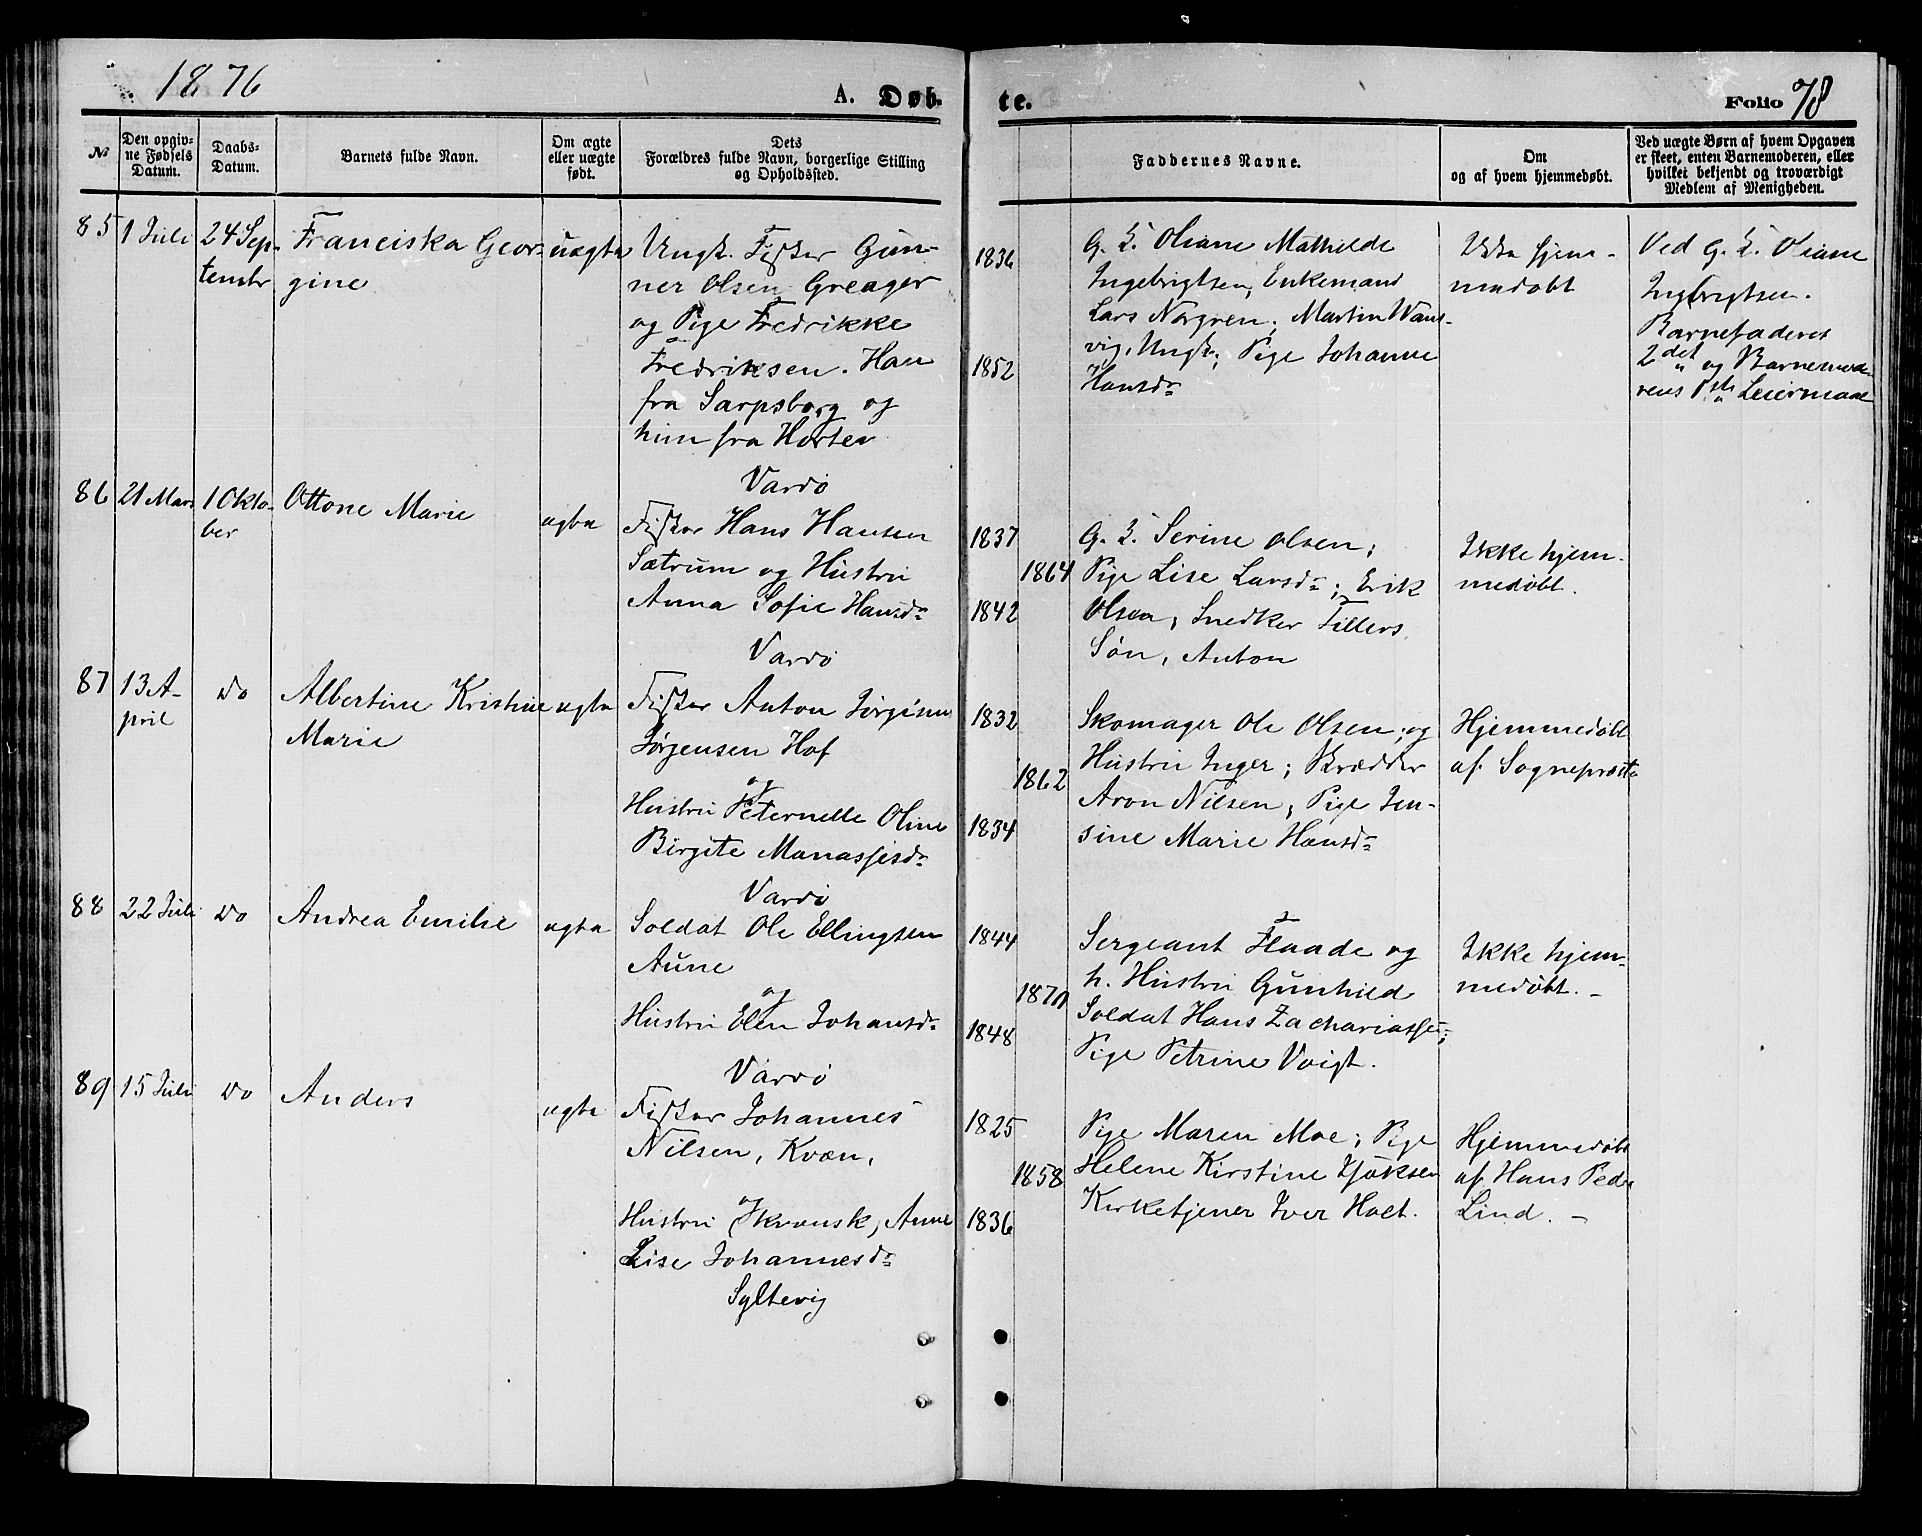 1876
A. Døb-
te.
Folio 78
№
Den opgiv-
ne Fødsels
Datum.
Daabs-
Datum.
Barnets fulde Navn.
Om ægte
eller uægte
født.
Dets
Forældres fulde Navn, borgerlige Stilling
og Opholdssted.
Faddernes Navne.
Om
og af hvem hjemmedøbt.
Ved uægte Børn af hvem Opgaven
er skeet, enten Barnemoderen, eller
hvilket bekjendt og troværdigt
Medlem af Menigheden.
85
1 Juli
24 Sep-
tembr
Franciska Geor-
gine
uægte
Ungk. Fisker Gun-
ner Olsen Greager
og Pige Fredrikke
Fredriksen. Han
fra Sarpsborg og
hun fra Horten
Vardö
1836
1852
G. K. Oliane Mathilde
Ingebrigtsen, Enkemand
Lars Norgren; Martin Wans-
vig, Ungk.; Pige Johanne
Hansdr
Ikke hjem-
medöbt
Ved G. K. Oliane
Ingbrigtsen.
Barnefaderes
2det og Barnemode-
rens 1ste Leiermaal
86
21 Mars
1 Okto-
ber
Ottone Marie
ægte
Fisker Hans Hansen
Sætrum og Hustru
Anna Sofie Hansdr
Vardö
1837
1864
1842
G. K. Serine Olsen;
Pige Lise Larsdr; Erik
Olsen, Snedker Tillers
Sön, Anton
Ikke hjem-
medöbt.
87
13 A-
pril
do
Albertine Kristine
Marie
ægte
Fisker Anton Jörginus
Jörgensen Hof
og
Hustru Peternelle Oline
Birgite Manassesdr
Vardö
1832
1862
1834
Skomager Ole Olsen; og
Hustru Inger; Skrædder
Aron Nilsen; Pige Jen-
sine Marie Hansdr
Hjemmedöbt
af Sogneprest
88
22 Juli
do
Andrea Emilie
ægte
Soldat Ole Ellingsen
Aune
og
Hustru Elen Johansdr
Vardö
1844
1848
Sergeant Flaade og
h. Hustru Gunhild
Soldat Hans Zachariassen;
Pige Petrine Voigt.
Ikke hjem-
medöbt. -
89
15 Juli
do
Anders
ægte
Fisker Johannes
Nilsen, Kvæn,
og
Hustru (kvensk) Anne
Lise Johannesdr
Syltevig
1825
1858
1836
Pige Maren Moe; Pige
Helene Kirstine
Kirketjener Iver Holt.
Hjemmedöbt
af Hans Peder
Lind. -